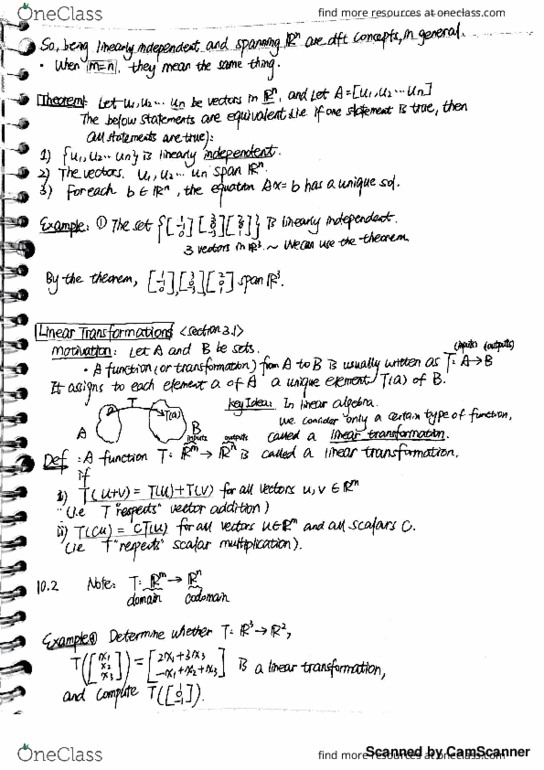 OneClass
find more resources at oneclass.com
So, being linearly independent and spanning ℝⁿ are dft concepts, in general.
• When m=n, they mean the same thing.
Theorem: Let u₁, u₂ ... uₙ be vectors in ℝⁿ, and let A = [u₁, u₂ ... uₙ]
The below statements are equivalent (i.e if one statement is true, then
all statements are true):
1) {u₁, u₂ ... uₙ} is linearly independent.
2) The vectors u₁, u₂ ... uₙ span ℝⁿ.
3) For each b ∈ ℝⁿ, the equation Ax=b has a unique sol.
Example: ① The set is linearly independent.
3 vectors in ℝ³ ~ We can use the theorem.
By the theorem, span ℝ³.
Linear Transformations <section 3.1>
(inputs) (outputs)
Motivation: Let A and B be sets.
• A function (or transformation) from A to B is usually written as T: A → B
It assigns to each element a of A a unique element T(a) of B.
T
a
T(a)
A
B
Key Idea: In linear algebra.
we consider only a certain type of function,
called a linear transformation.
inputs outputs
Def: A function T: ℝᵐ → ℝⁿ is called a linear transformation.
if
i) T(u+v) = T(u) + T(v) for all vectors u, v ∈ ℝᵐ
(i.e T "respects" vector addition)
ii) T(cu) = cT(u) for all vectors u ∈ ℝᵐ and all scalars c.
(i.e T "respects" scalar multiplication).
10.2 Note: T: ℝᵐ → ℝⁿ
domain codomain
Example ① Determine whether T: ℝ³ → ℝ²,
T([x₁ x₂ x₃]) = [2x₁+3x₃ -x₁+x₂+x₃] is a linear transformation,
and compute
Scanned by CamScanner
OneClass
find more resources at oneclass.com